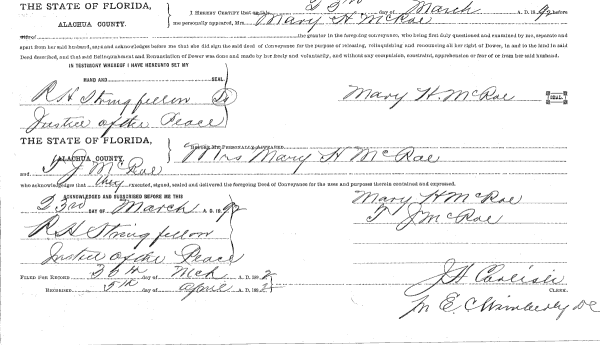 THE STATE OF FLORIDA,
ALACHUA COUNTY.
I HEREBY CERTIFY that on this 23rd day of March A. D. 1892 before
me personally appeared, Mrs. Mary H McRae
wife of the grantor in the foregoing conveyance, who being first duly questioned and examined by me, separate and
apart from her said husband, says and acknowledges before me that she did sign the said deed of Conveyance for the purpose of releasing, relinquishing and renouncing all her right of Dower, in and to the land in said
Deed described, and that said Relinquishment and Renunciation of Dower was done and made by her freely and voluntarily, and without any compulsion, constraint, apprehension or fear of or from her said husband.
IN TESTIMONY WHEREOF I HAVE HEREUNTO SET MY
HAND AND SEAL
R H Stringfellow
Mary H. McRae SEAL.
Justice of the Peace
THE STATE OF FLORIDA,
ALACHUA COUNTY,
BEFORE ME PERSONALLY APPEARED Mrs Mary H McRae
and T J McRae
who acknowledges that they executed, signed, sealed and delivered the foregoing Deed of Conveyance for the uses and purposes therein contained and expressed.
ACKNOWLEDGED AND SUBSCRIBED BEFORE ME THIS
23rd DAY OF March A. D. 1892
Mary H McRae
T J McRae
R H Stringfellow
Justice of the Peace
FILED FOR RECORD 26th day of Mch A. D. 1892
RECORDED 5th day of April A. D. 1892
J H Carlisle
CLERK.
M E Wimberly DC